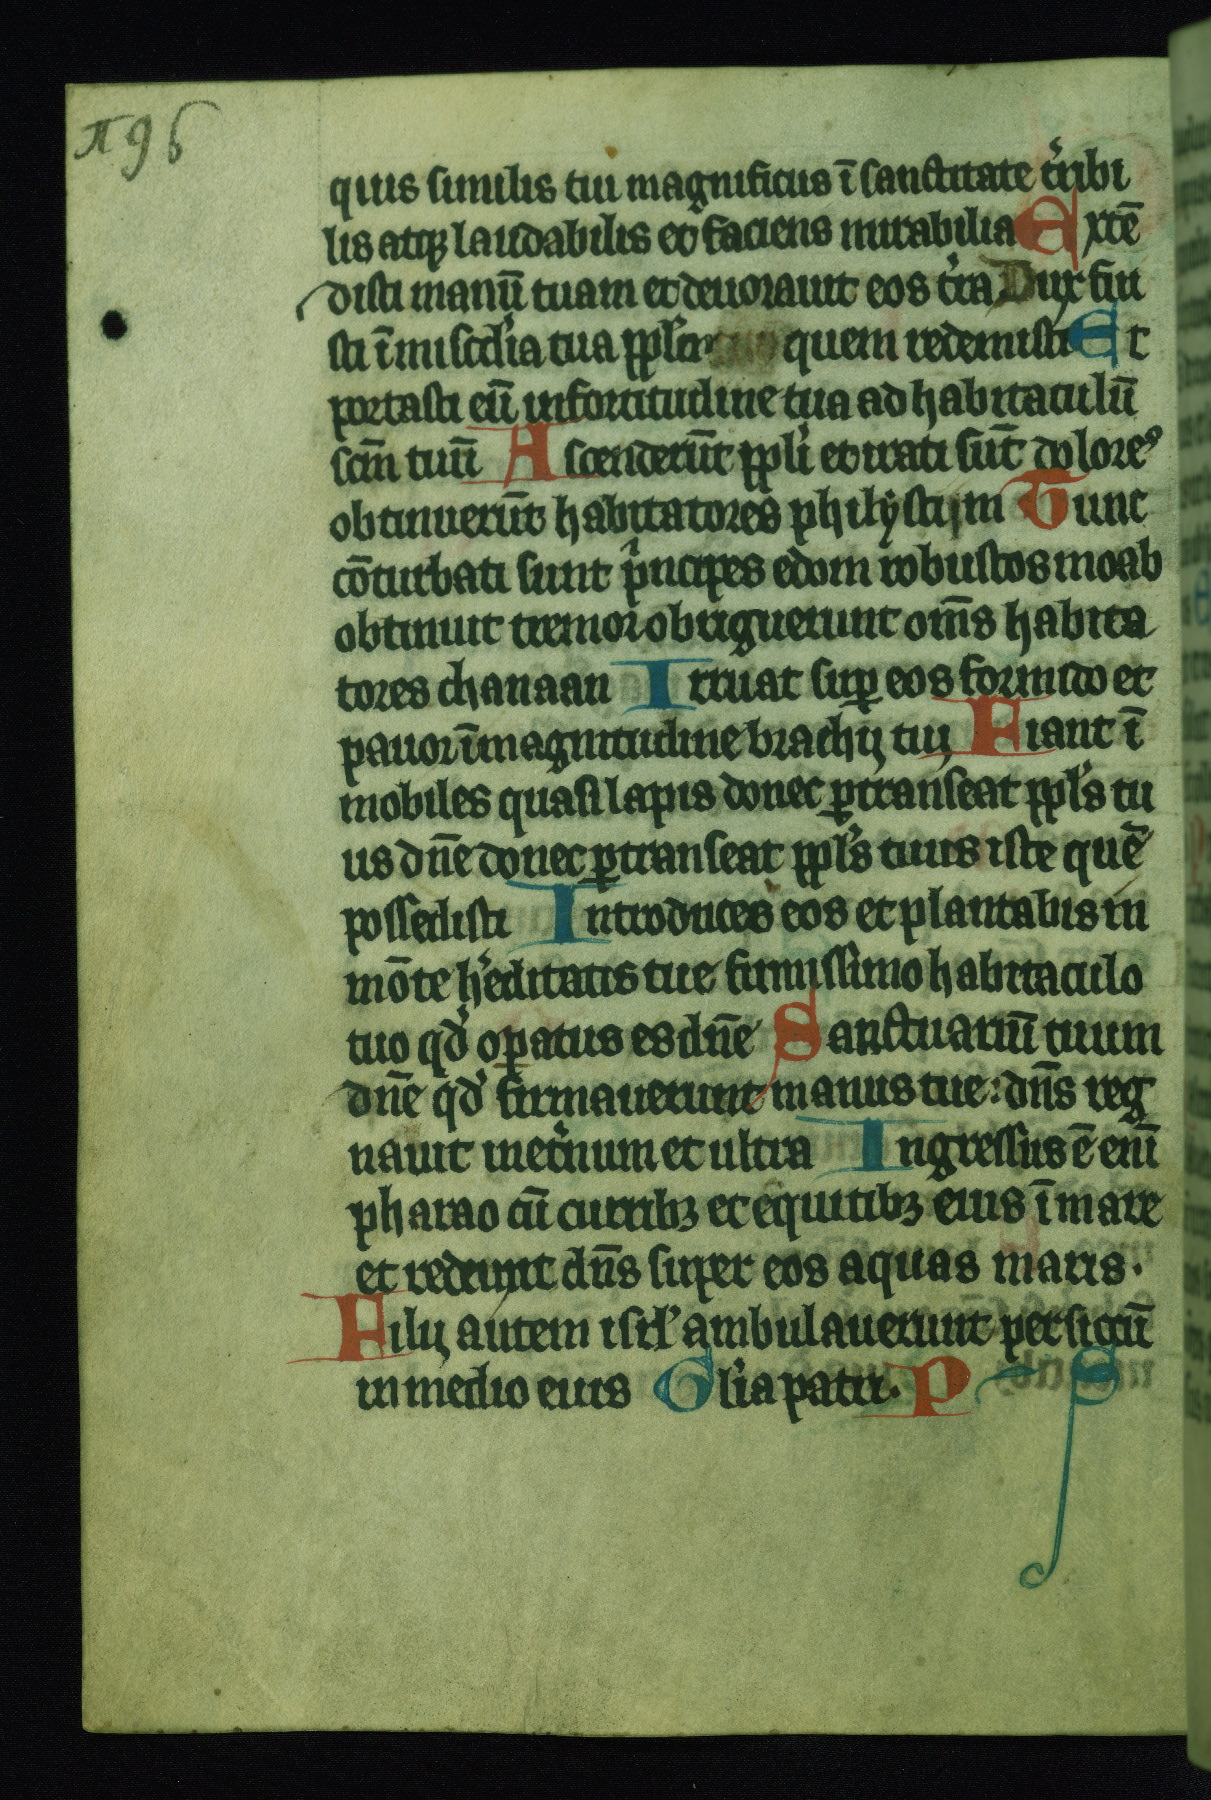 quis similis tui magnificus ī sanctitate tr̄ibi
lis atq; laudabilis et faciens mirabilia Extē
disti manū tuam et deuorauit eos tr̄a Dux fui
sti ī mis̄cdia tua ppl̄o quem redemisti Et
portasti eū in fortitudine tua ad habitaculū
sc̄m tuū Ascenderūt ppl̄i et irati sūt dolores
obtinuerūt habitatores philystijm Tunc
cōturbati sunt p̄ncipes edom robustos moab
obtinuit tremor obriguerunt om̄s habita
tores chanaan Irruat suꝑ eos formido et
pauor ī magnitudine brachij tui Fiant ī
mobiles quasi lapis donec ꝑtranseat ppl̄s tu
us dn̄e donec ꝑtranseat ppl̄s tuus iste quē
possedisti Introduces eos et plantabis in
mōte h̄editatis tue firmissimo habitaculo
tuo qd̄ oꝑatus es dn̄e Sanctuariū tuum
dn̄e qd̄ firmauerunt manus tue: dn̄s reg
nauit inet̄num et ultra Ingressus ē enī
pharao cū curribꝫ et equitibꝫ eius ī mare
et reduxit dn̄s super eos aquas maris.
Filij autem isrl̄ ambulauerunt per siccū
in medio eius Gl̄ia patri. P S